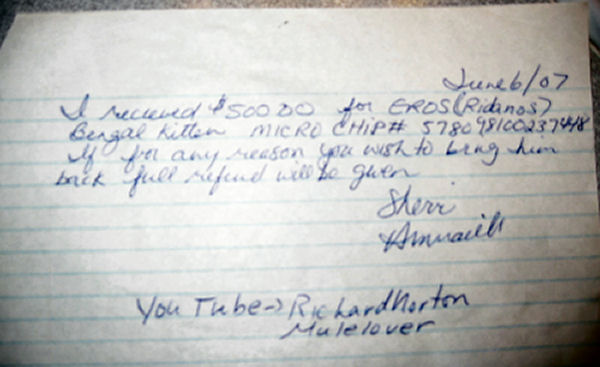 June 6/07
I recieved $500.00 for EROS (Ridanos)
Bengal Kitten MICRO CHIP# 578098100237448
If for any reason you wish to bring him
back full refund will be given
Sherri
You Tube→ Richard Norton
Mulelover